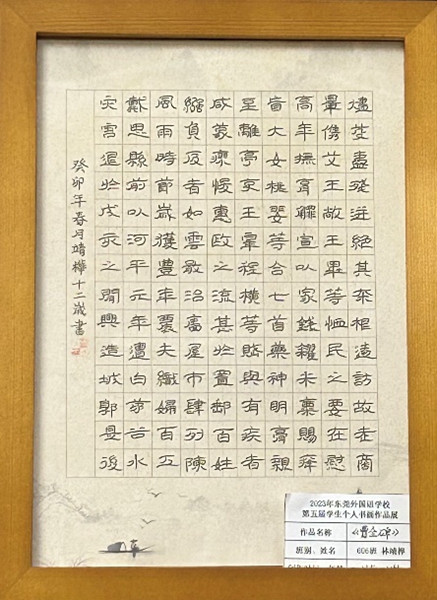 燼芟夷殘迸絕其本根遂訪故老商
量儁艾王敞王畢等恤民之要存慰
高年撫育鰥寡以家錢糴米粟賜癃
盲大女桃婓等合七首藥神明膏親
至離亭吏王宰程橫等賦與有疾者
咸蒙瘳悛惠政之流甚於置郵百姓
繈負反者如雲戢治廧屋市肆列陳
風雨時節歲獲豐年農夫織婦百工
戴恩縣前以河平元年遭白茅谷水
災害退於戌亥之間興造城郭是後
癸卯年春月靖樺十二歲書
2023年东莞外国语学校
第五届学生个人书画作品展
作品名称 《曹全碑》
班别、姓名 606班 林靖桦